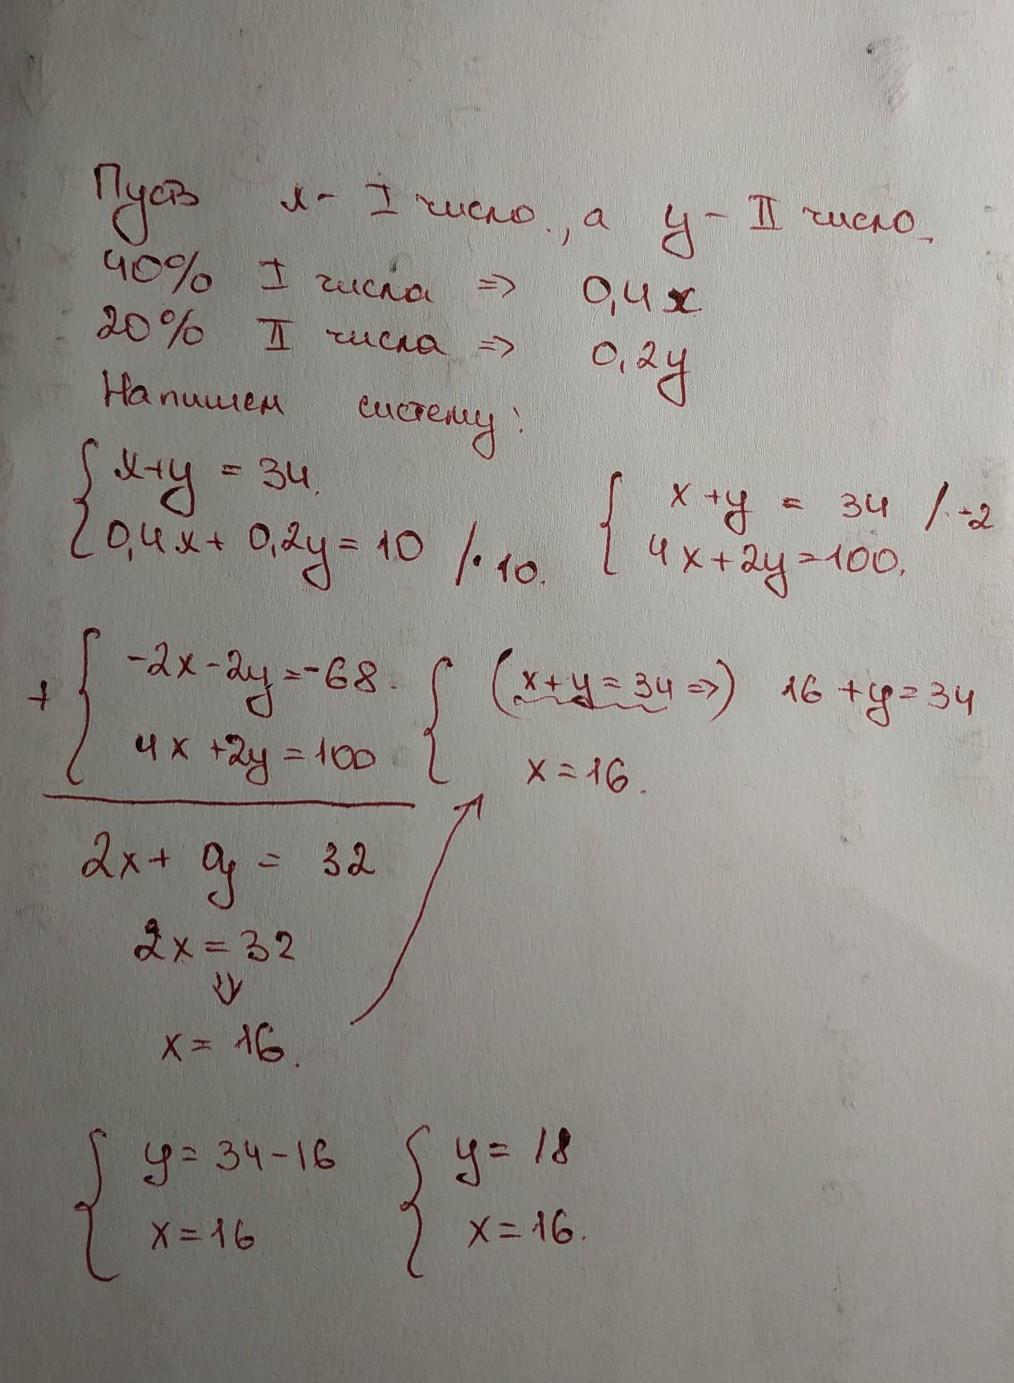 Пусть x - I число., а y - II число.
40% I числа => 0,4x
20% II числа => 0,2y
Напишем систему:
{ x+y = 34.
0,4x + 0,2y = 10 /·10.
{ x+y = 34 /·-2
4x+2y=100.
+ { -2x-2y=-68.
4x+2y=100
{ (x+y=34 =>) 16+y=34
x=16.
2x+ 0y = 32
2x=32
⇓
x= 16.
{ y= 34-16
x=16
{ y= 18
x=16.